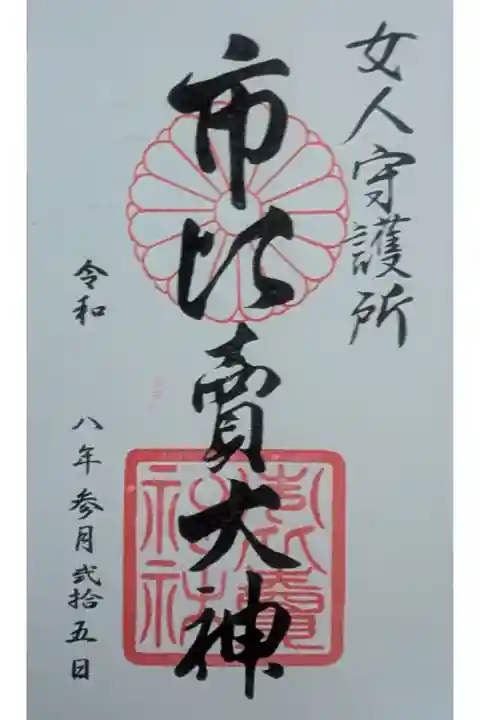 女人守護所
市比賣大神
令和 八年 参月 弐拾五日